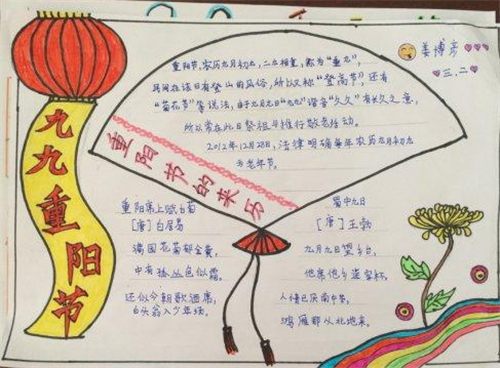 九九重阳节
姜博彦
三.二
重阳节，农历九月初九，二九相重，称为“重九”，
民间在该日有登山的风俗，所以称“登高节”，还有
“菊花节”等说法，由于九月九日“九九”谐音“久久”有长久之意，
所以常在此日祭祖与推行敬老活动。
2012年12月28日，法律明确每年农历九月初九
为老年节。
重阳节的来历
重阳席上赋白菊
[唐] 白居易
满园花菊郁金黄，
中有孤丛色似霜。
还似今朝歌酒席，
白头翁入少年场。
蜀中九日
[唐] 王勃
九月九日望乡台，
他席他乡送客杯。
人情已厌南中苦，
鸿雁那从北地来。